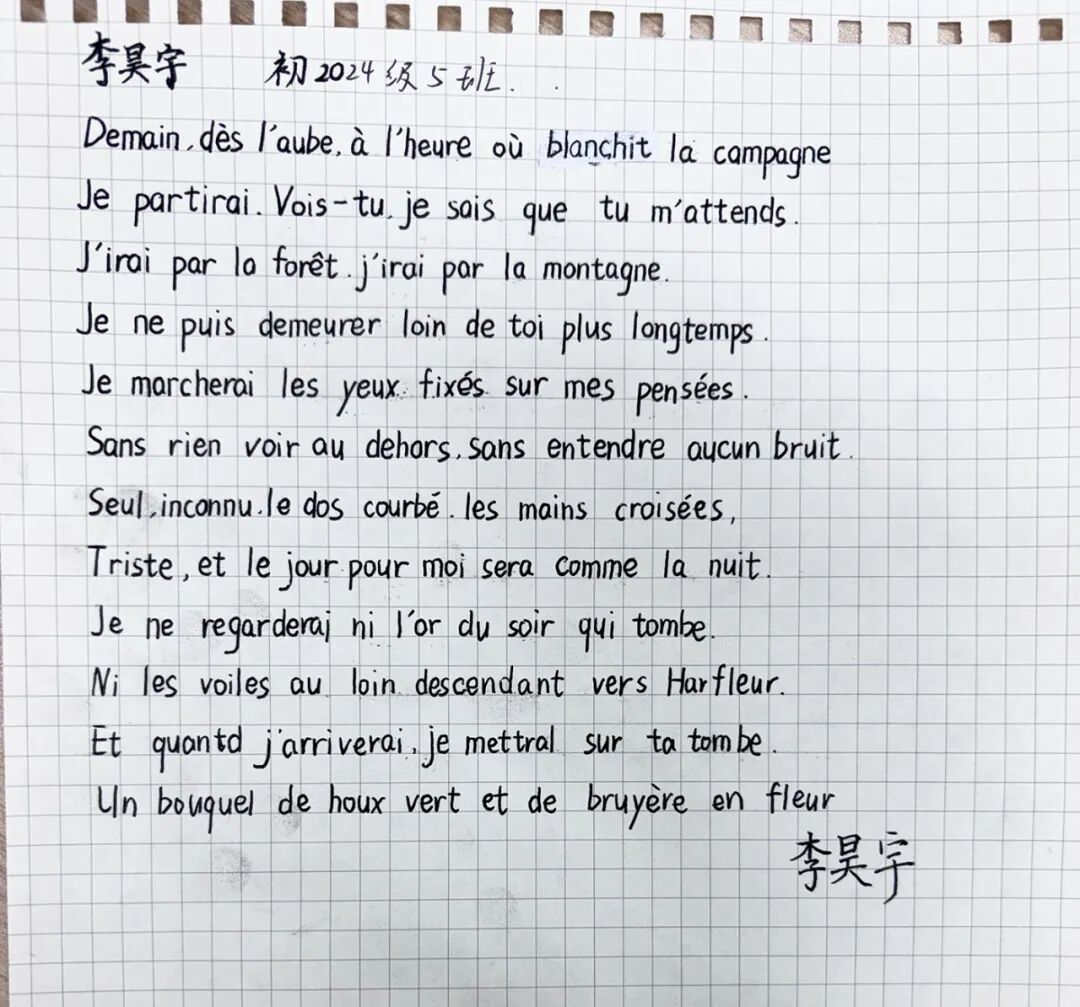 李昊宇 初2024级5班.
Demain, dès l'aube, à l'heure où blanchit la campagne
Je partirai. Vois-tu, je sais que tu m'attends.
J'irai par la forêt. j'irai par la montagne.
Je ne puis demeurer loin de toi plus longtemps.
Je marcherai les yeux fixés sur mes pensées.
Sans rien voir au dehors, sans entendre aucun bruit.
Seul, inconnu. le dos courbé. les mains croisées,
Triste, et le jour pour moi sera comme la nuit.
Je ne regarderai ni l'or du soir qui tombe.
Ni les voiles au loin descendant vers Harfleur.
Et quantd j'arriverai, je mettral sur ta tombe.
Un bouquel de houx vert et de bruyère en fleur
李昊宇